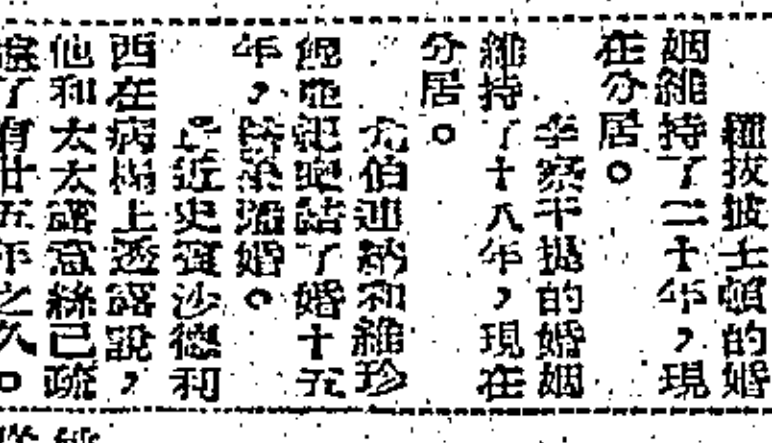 拔披士頓的婚
姻維持了二十年，現
在分居。
李察平提的婚姻
維持了十八年，現在
分居。
尤伯連納和維珍
結了婚十五
年，婚。
近史賓沙德利
西在病榻上透露說，
他和太太露意絲已疏
遠了有廿五年之久。